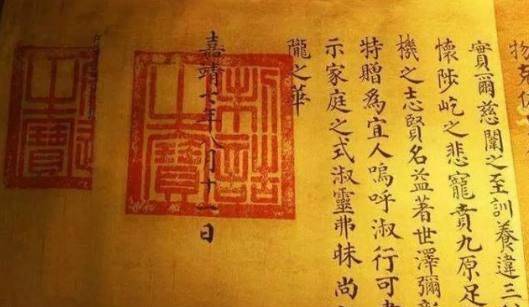 實爾慈闈之至訓養違三
懷陟屺之悲寵賁九原足
機之志賢名益著世澤彌
特贈爲宜人嗚呼淑行可
示家庭之式淑靈弗昧尚
隴之華
嘉靖七年八月十一日
制誥
之寶
之寶